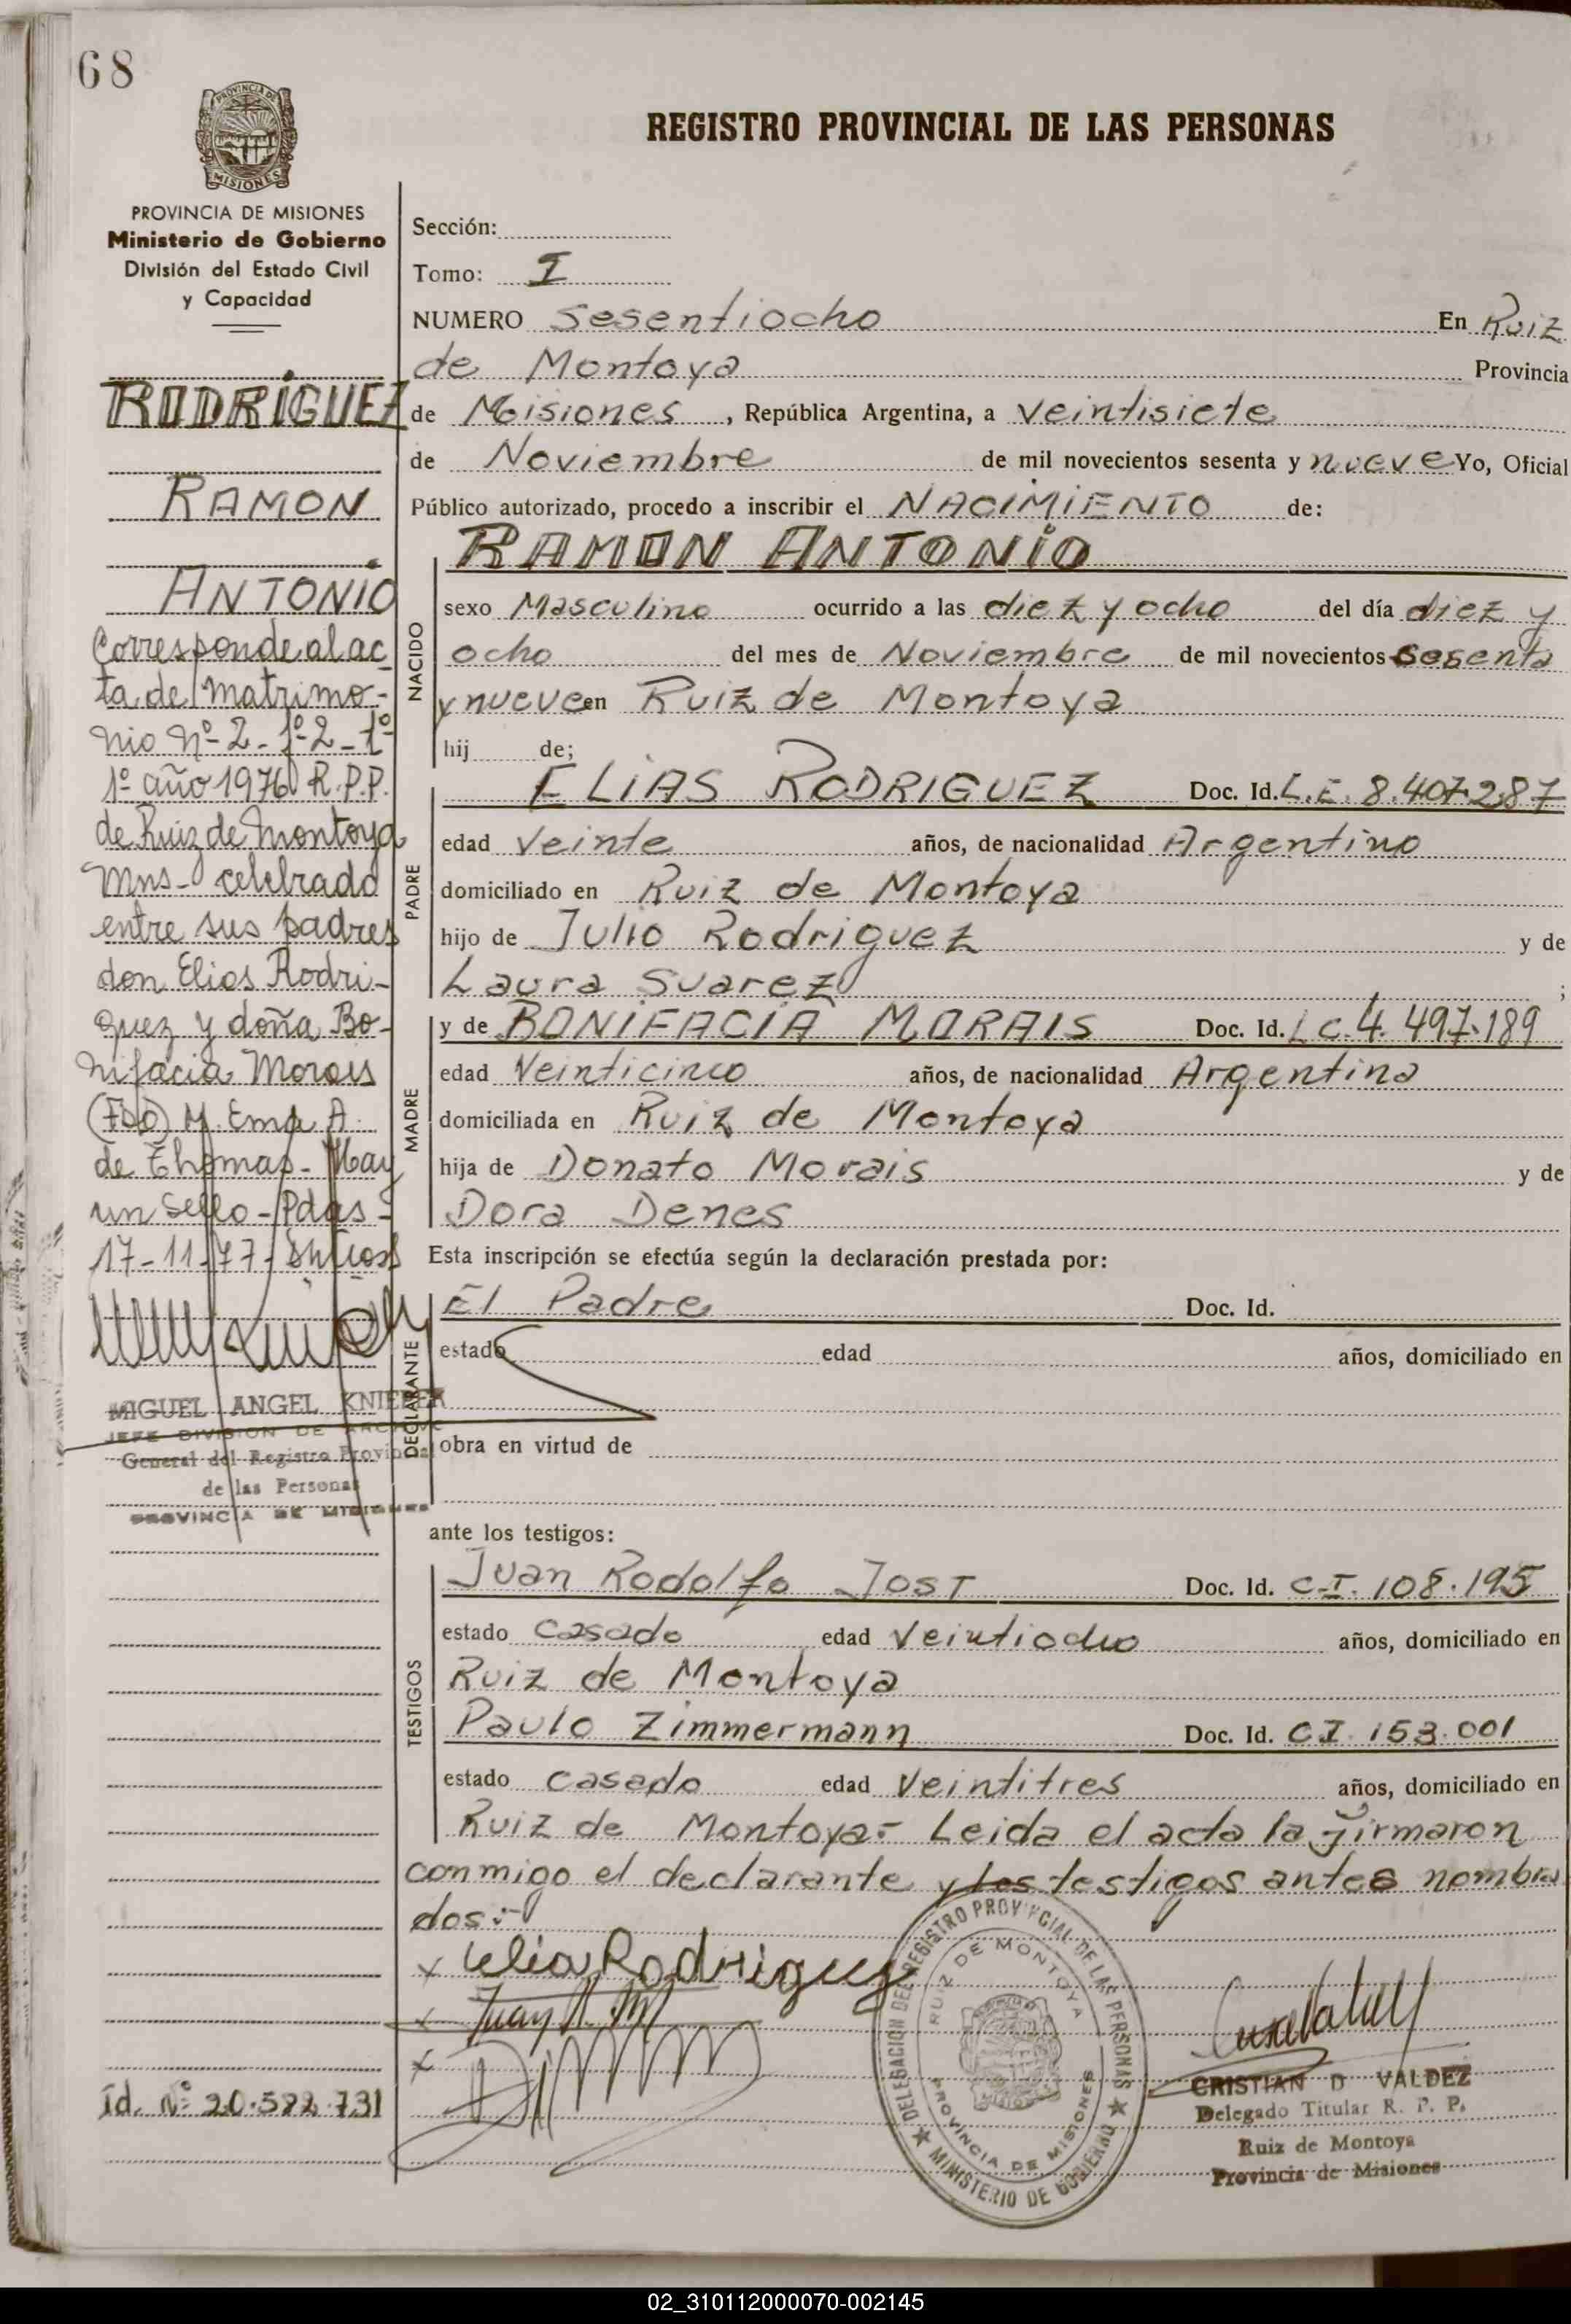 68
PROVINCIA DE
MISIONES
PROVINCIA DE MISIONES
Ministerio de Gobierno
División del Estado Civil
y Capacidad
RODRÍGUEZ
RAMON
ANTONIO
Corresponde al ac
ta de matrimo-
nio Nº 2 - Tº 2 - Fº
1º año 1976 R.P.P.
de Ruiz de Montoya
Mns - celebrado
entre sus padres
don Elios Rodri-
guez y doña Bo-
nifacia Morais
(Fdo) M. Ema A.
de Thomas - Hay
un sello - Pdas -
17-11-77-
MIGUEL ANGEL KNIEPER
JEFE DIVISION DE ARCHIVO
General del Registro Provincial
de las Personas
PROVINCIA DE MISIONES
Id. Nº 20.582.731
REGISTRO PROVINCIAL DE LAS PERSONAS
Sección:
Tomo: I
NUMERO Sesentiocho En Ruiz
de Montoya Provincia
de Misiones, República Argentina, a veintisiete
de Noviembre de mil novecientos sesenta y nueve Yo, Oficial
Público autorizado, procedo a inscribir el NACIMIENTO de:
RAMON ANTONIO
NACIDO
sexo Masculino ocurrido a las diez y ocho del día diez y
ocho del mes de Noviembre de mil novecientos sesenta
y nueve en Ruiz de Montoya
hij de;
PADRE
ELIAS RODRIGUEZ Doc. Id. L.E. 8.407.287
edad veinte años, de nacionalidad Argentino
domiciliado en Ruiz de Montoya
hijo de Julio Rodriguez y de
Laura Suarez ;
MADRE
y de BONIFACIA MORAIS Doc. Id. LC. 4.497.189
edad Veinticinco años, de nacionalidad Argentina
domiciliada en Ruiz de Montoya
hija de Donato Morais y de
Dora Denes
Esta inscripción se efectúa según la declaración prestada por:
DECLARANTE
El Padre Doc. Id.
estado edad años, domiciliado en
obra en virtud de
ante los testigos:
TESTIGOS
Juan Rodolfo JOST Doc. Id. C.I. 108.195
estado casado edad veintiocho años, domiciliado en
Ruiz de Montoya
Paulo Zimmermann Doc. Id. C.I. 153.001
estado casado edad veintitres años, domiciliado en
Ruiz de Montoya.- Leida el acta la firmaron
conmigo el declarante y los testigos antes nombra
dos.-
x Rodriguez
x Juan
x
DELEGACION DEL REGISTRO PROVINCIAL DE LAS PERSONAS
RUIZ DE MONTOYA
PROVINCIA DE MISIONES
★ MINISTERIO DE GOBIERNO ★
CRISTIAN D VALDEZ
Delegado Titular R. P. P.
Ruiz de Montoya
Provincia de Misiones
02_310112000070-002145